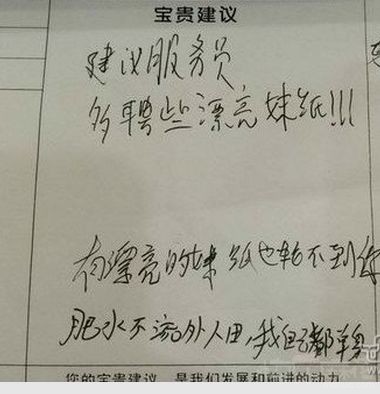 宝贵建议
建议服务员
多聘些漂亮妹纸!!!
有漂亮的妹纸也轮不到你
肥水不流外人田,我自己都单身
您的宝贵建议,是我们发展和前进的动力